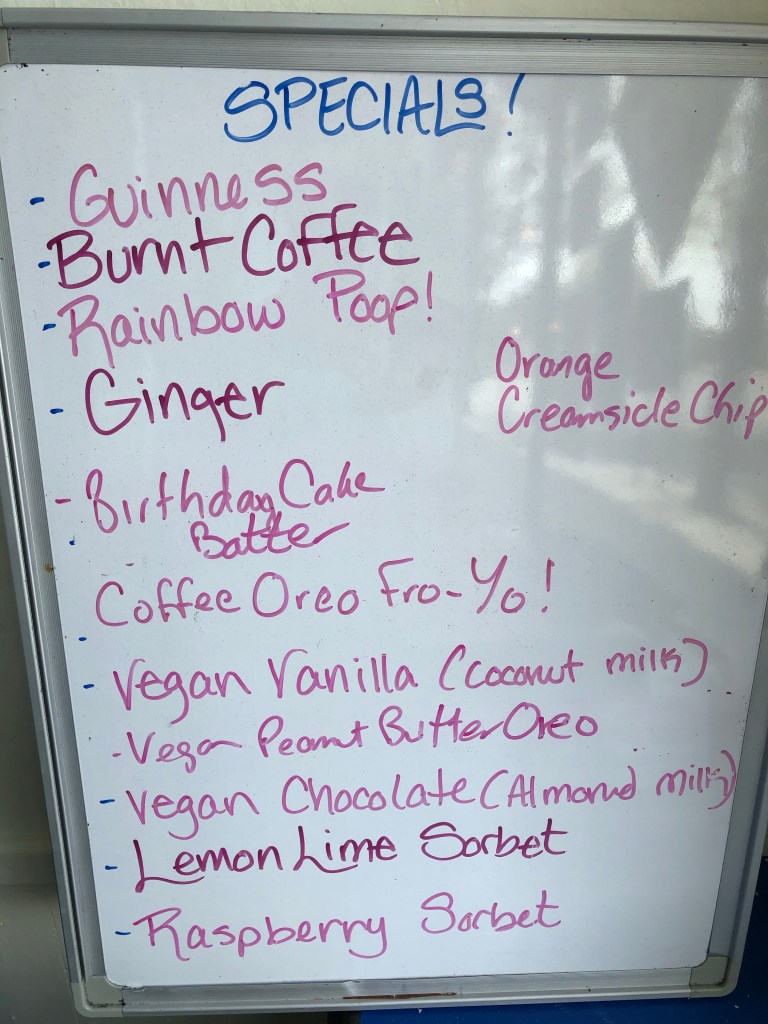 SPECIALS!
- Guinness
- Burnt Coffee
- Rainbow Poop!
- Ginger
Orange
Creamsicle Chip
- Birthday Cake
Batter
Coffee Oreo Fro-Yo!
- Vegan Vanilla (coconut milk)
- Vegan Peanut Butter Oreo
- Vegan Chocolate (Almond milk)
- Lemon Lime Sorbet
- Raspberry Sorbet